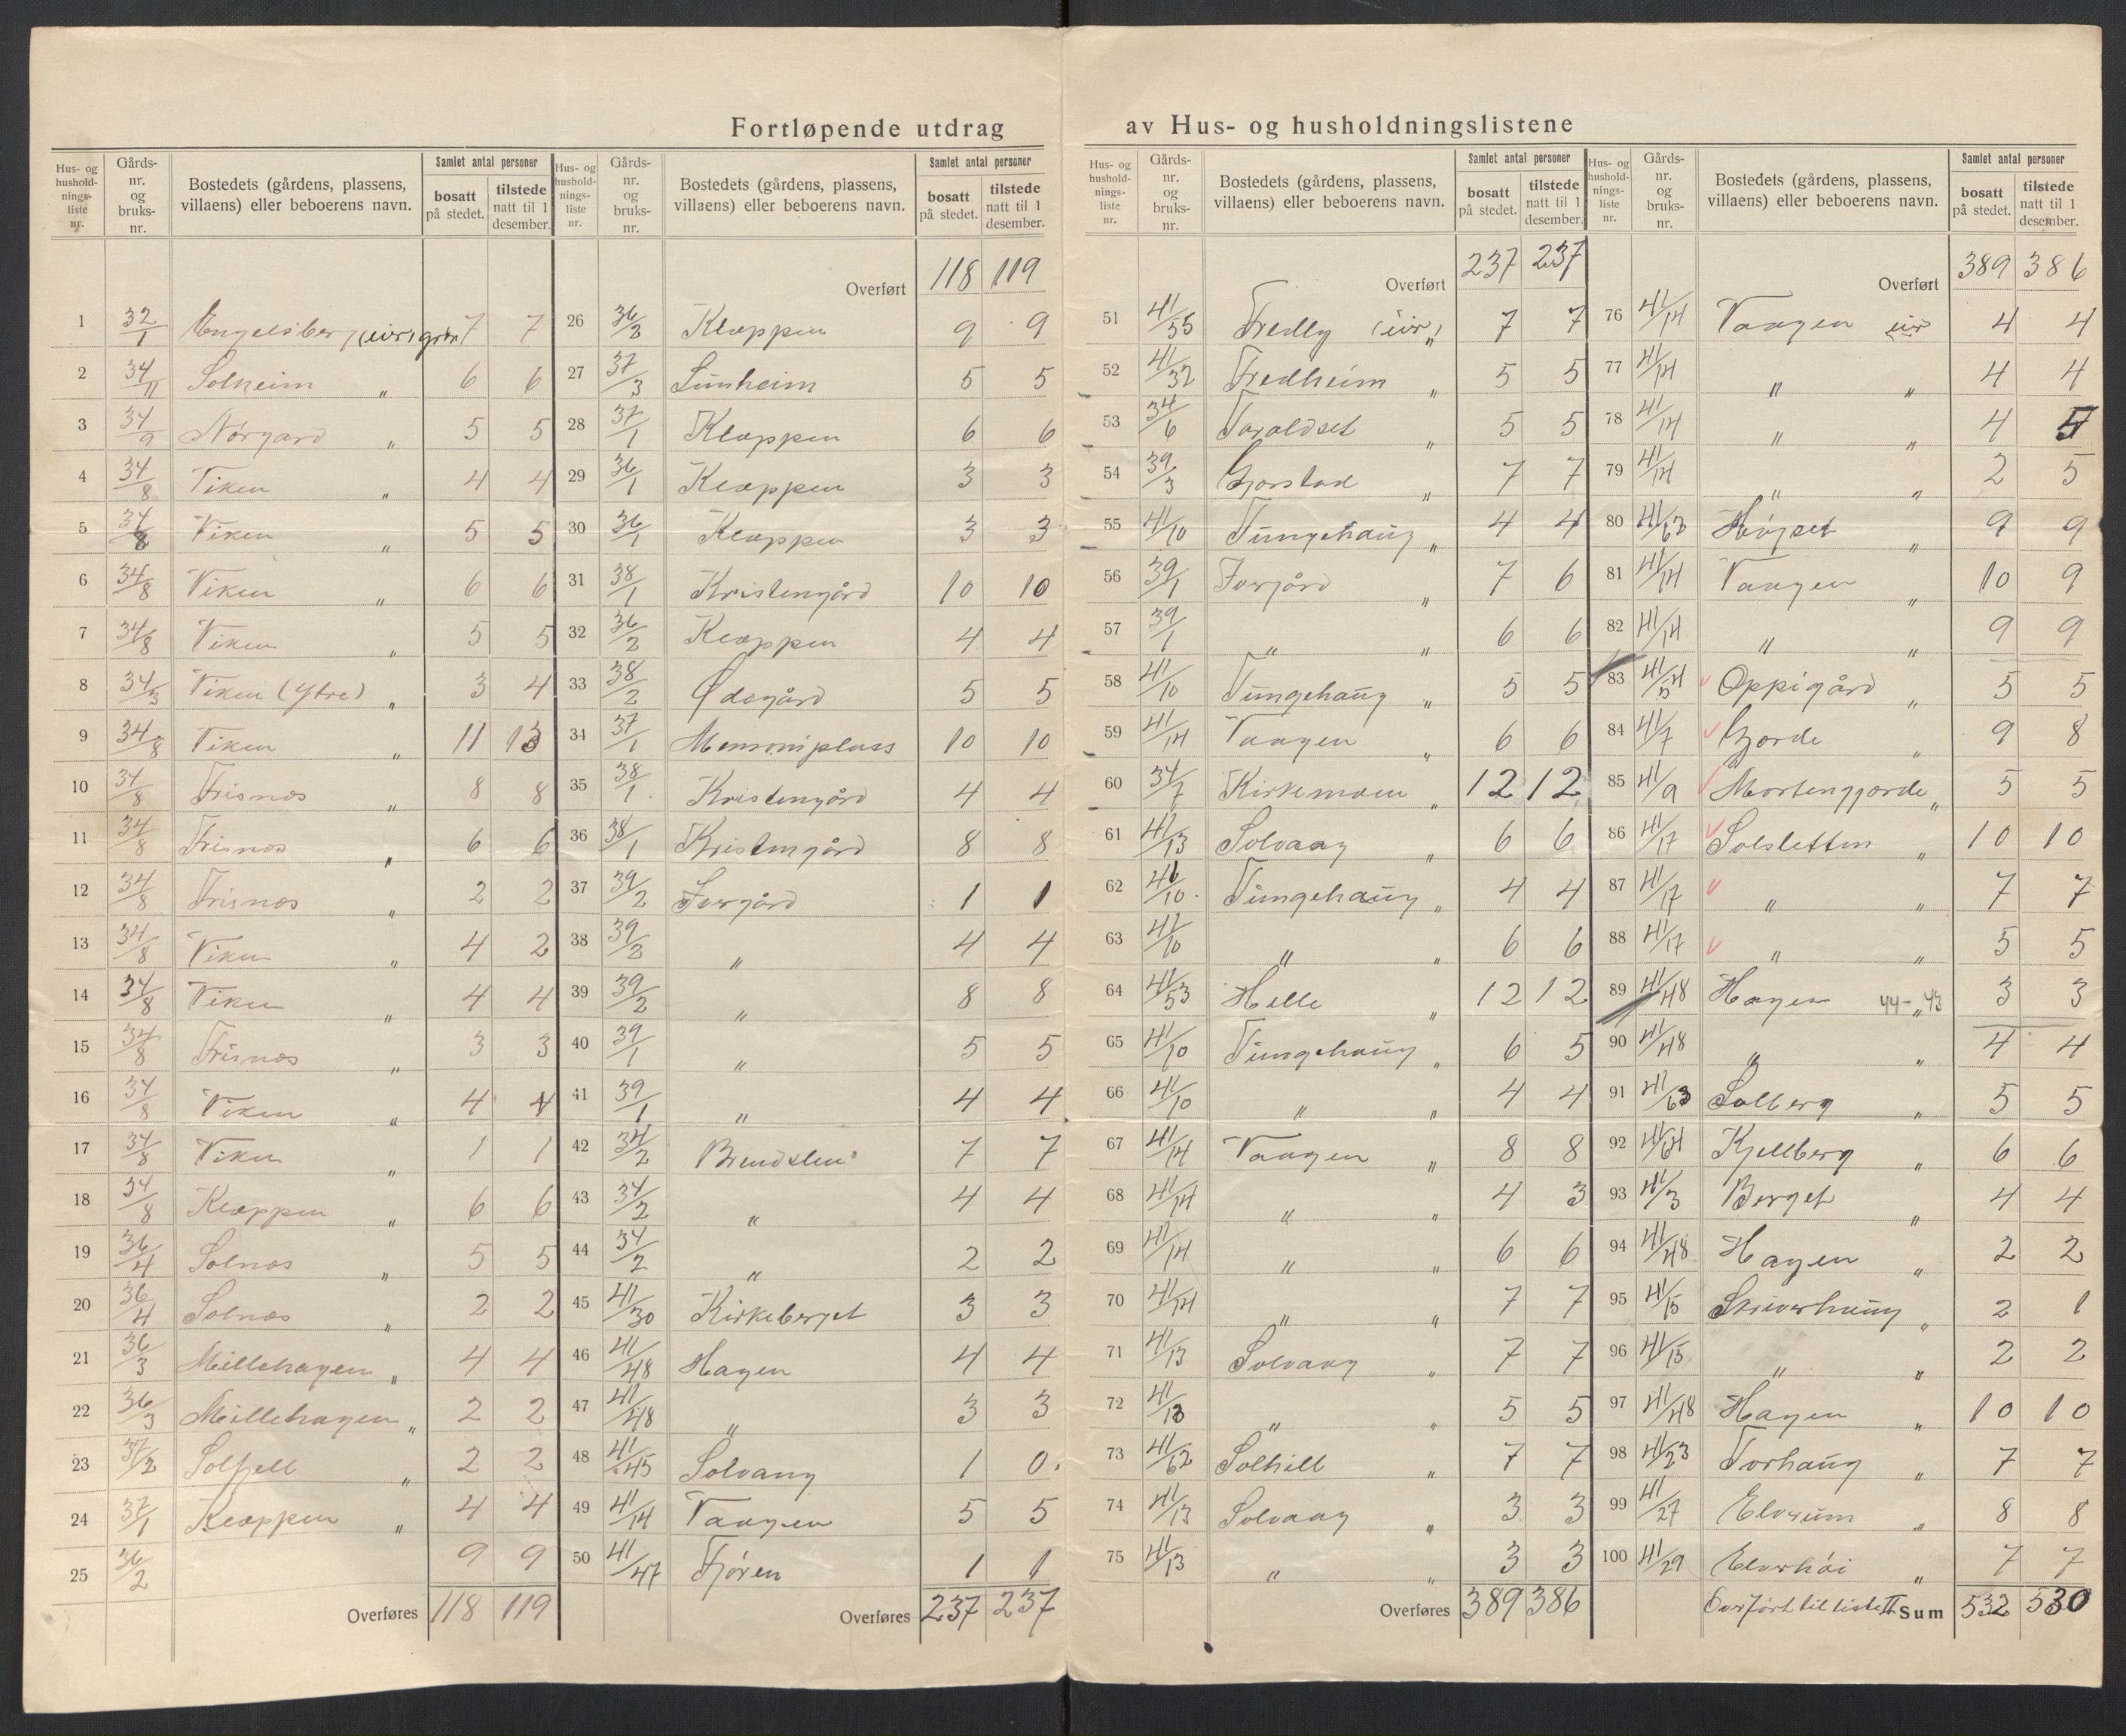 Fortløpende utdrag av Hus- og husholdningslistene
Hus- og husholdnings-liste nr. | Gårds-nr. og bruks-nr. | Bostedets (gårdens, plassens, villaens) eller beboerens navn. | Samlet antal personer bosatt på stedet. | tilstede natt til 1 desember.
1 32/1 Engelsberg (eier) 7 7
2 34/11 Solheim " 6 6
3 34/9 Nørgard " 5 5
4 34/8 Viken " 4 4
5 34/8 Viken " 5 5
6 34/8 Viken " 6 6
7 34/8 Viken " 5 5
8 34/3 Viken (Ytre) " 3 4
9 34/8 Viken " 11 13
10 34/8 Trisnæs " 8 8
11 34/8 Trisnæs " 6 6
12 34/8 Trisnæs " 2 2
13 34/8 Viken " 4 2
14 34/8 Viken " 4 4
15 34/8 Trisnæs " 3 3
16 34/8 Viken " 4 4
17 34/8 Viken " 1 1
18 34/8 Klæppen " 6 6
19 36/4 Solnæs " 5 5
20 36/4 Solnæs " 2 2
21 36/3 Millehagen " 4 4
22 36/3 Millehagen " 2 2
23 37/2 Solfjell " 2 2
24 37/1 Klæppen " 4 4
25 36/2 9 9
Overføres 118 119
Hus- og husholdnings-liste nr. | Gårds-nr. og bruks-nr. | Bostedets (gårdens, plassens, villaens) eller beboerens navn. | Samlet antal personer bosatt på stedet. | tilstede natt til 1 desember.
Overført 118 119
26 36/2 Klæppen 9 9
27 37/3 Sunheim 5 5
28 37/1 Klæppen 6 6
29 36/1 Klæppen 3 3
30 36/1 Klæppen 3 3
31 38/1 Kristengård 10 10
32 36/2 Klæppen 4 4
33 38/2 Ødegård 5 5
34 37/1 10 10
35 38/1 Kristengård 4 4
36 38/1 Kristengård 8 8
37 39/2 Forgård 1 1
38 39/2 " 4 4
39 39/2 " 8 8
40 39/1 " 5 5
41 39/1 " 4 4
42 34/2 7 7
43 34/2 " 4 4
44 34/2 " 2 2
45 41/30 Kirkeberget 3 3
46 41/48 Hagen 4 4
47 41/48 " 3 3
48 41/45 Solvang 1 0
49 41/14 Vaagen 5 5
50 41/47 Tjøren 1 1
Overføres 237 237
Hus- og husholdnings-liste nr. | Gårds-nr. og bruks-nr. | Bostedets (gårdens, plassens, villaens) eller beboerens navn. | Samlet antal personer bosatt på stedet. | tilstede natt til 1 desember.
Overført 237 237
51 41/55 Fredly (eier) " 7 7
52 41/32 Fredheim " 5 5
53 34/6 Toraldset " 5 5
54 39/3 Gjorstad " 7 7
55 41/10 Tungehaug " 4 4
56 39/1 Forgård " 7 6
57 39/1 " " 6 6
58 41/10 Tungehaug " 5 5
59 41/14 Vaagen " 6 6
60 34/7 Kirkemoen " 12 12
61 41/13 Solvaag " 6 6
62 41/10 Tungehaug " 4 4
63 41/10 " " 6 6
64 41/53 Helle " 12 12
65 41/10 Tungehaug " 6 5
66 41/10 " " 4 4
67 41/14 Vaagen " 8 8
68 41/14 " " 4 3
69 41/14 " " 6 6
70 41/14 " " 7 7
71 41/13 Solvaag " 7 7
72 41/13 " " 5 5
73 41/62 Solhill " 7 7
74 41/13 Solvaag " 3 3
75 41/13 " " 3 3
Overføres 389 386
Hus- og husholdnings-liste nr. | Gårds-nr. og bruks-nr. | Bostedets (gårdens, plassens, villaens) eller beboerens navn. | Samlet antal personer bosatt på stedet. | tilstede natt til 1 desember.
Overført 389 386
76 41/14 Vaagen eier 4 4
77 41/14 " " 4 4
78 41/14 " " 4 5
79 41/14 " " 2 5
80 41/63 Højset " 9 9
81 41/14 Vaagen " 10 9
82 41/14 " " 9 9
83 Oppigård " 5 5
84 41/7 Gjorde " 9 8
85 41/9 Mortengjorde " 5 5
86 41/17 Solsletten " 10 10
87 41/17 " " 7 7
88 41/17 " " 5 5
89 41/48 Hagen 44-43 " 3 3
90 41/48 " " 4 4
91 41/63 Solberg " 5 5
92 41/64 Kjellberg " 6 6
93 41/3 Berget " 4 4
94 41/48 Hagen " 2 2
95 41/15 Skriverhaug " 2 1
96 41/15 " " 2 2
97 41/48 Hagen " 10 10
98 41/23 Torhaug " 7 7
99 41/27 Elvsum " 8 8
100 41/29 Elvarhøi " 7 7
Overført til liste II Sum 532 530